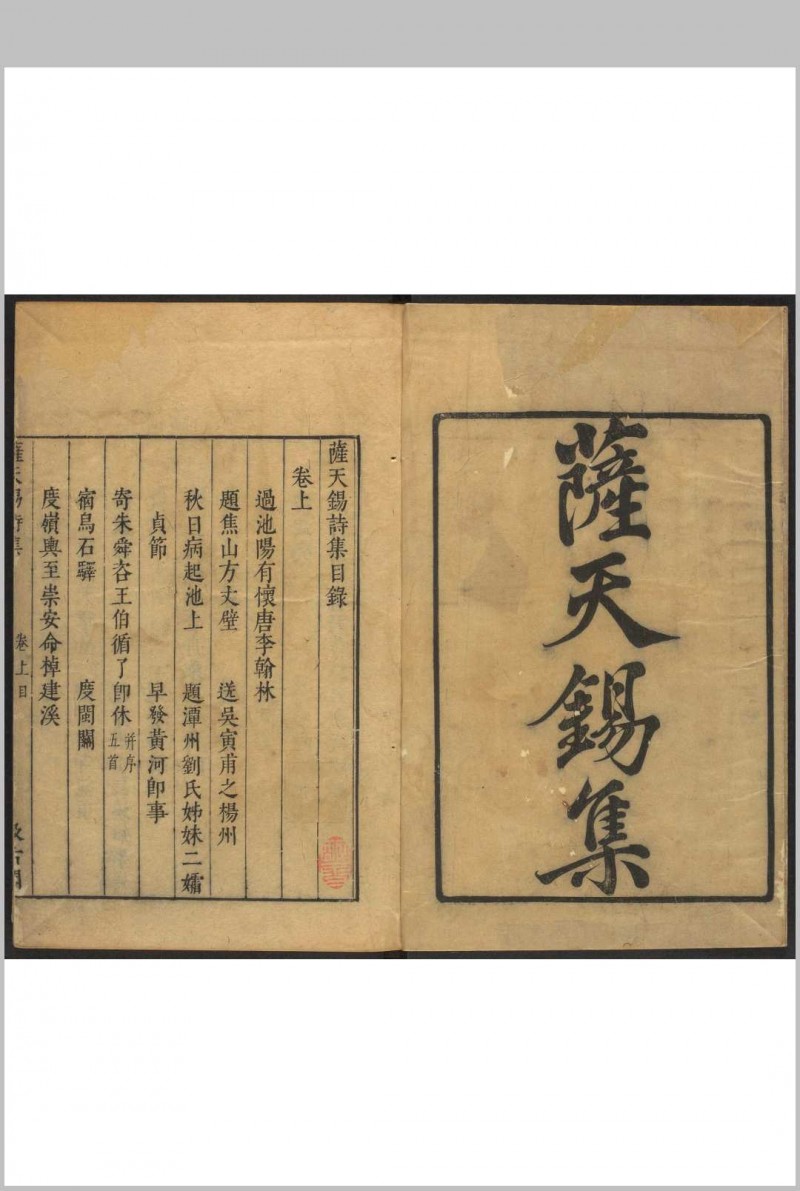 薩天錫集
薩天錫詩集目錄
卷上
過池陽有懷唐李翰林
題焦山方丈壁 送吳寅甫之楊州
秋日病起池上 題潭州劉氏姊妹二孀
貞節 早發黃河卽事
寄朱舜咨王伯循了卽休 幷序 五首
宿烏石驛 度閩關
度嶺輿至崇安命棹建溪
薩天錫詩集 卷上目